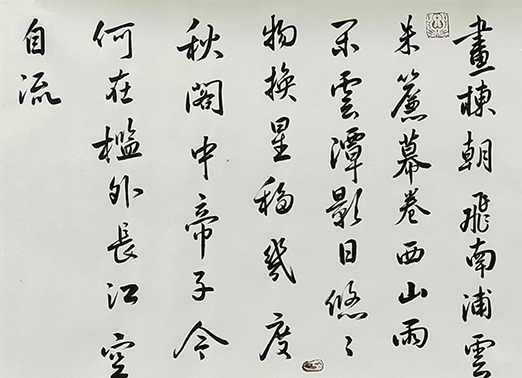 畫棟朝飛南浦雲
朱簾暮卷西山雨
閑雲潭影日悠〻
物換星移幾度
秋閣中帝子今
何在檻外長江空
自流